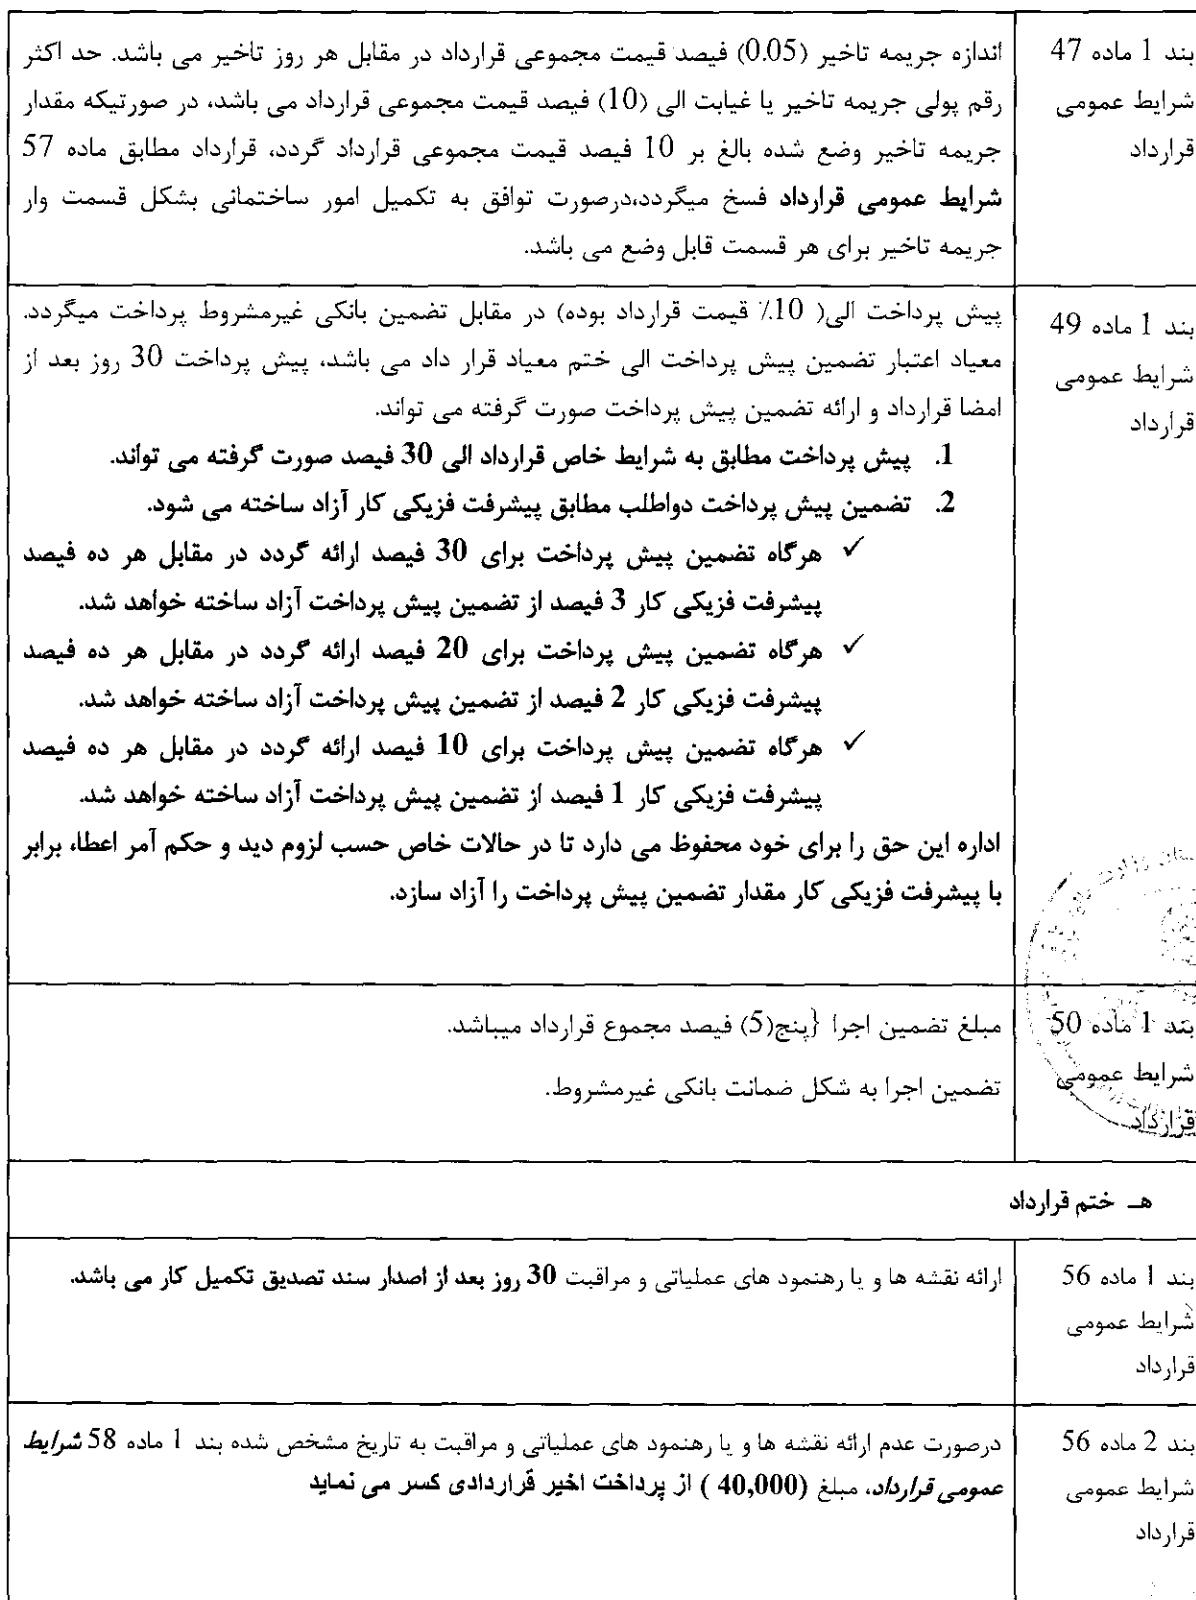 بند 1 ماده 47
شرایط عمومی
قرارداد
اندازه جریمه تاخیر (0.05) فیصد قیمت مجموعی قرارداد در مقابل هر روز تاخیر می باشد. حد اکثر
رقم پولی جریمه تاخیر یا غیابت الی (10) فیصد قیمت مجموعی قرارداد می باشد، در صورتیکه مقدار
جریمه تاخیر وضع شده بالغ بر 10 فیصد قیمت مجموعی قرارداد گردد، قرارداد مطابق ماده 57
شرایط عمومی قرارداد فسخ میگردد،درصورت توافق به تکمیل امور ساختمانی بشکل قسمت وار
جریمه تاخیر برای هر قسمت قابل وضع می باشد.
بند 1 ماده 49
شرایط عمومی
قرارداد
پیش پرداخت الی( 10٪ قیمت قرارداد بوده) در مقابل تضمین بانکی غیرمشروط پرداخت میگردد.
معیاد اعتبار تضمین پیش پرداخت الی ختم معیاد قرار داد می باشد، پیش پرداخت 30 روز بعد از
امضا قرارداد و ارائه تضمین پیش پرداخت صورت گرفته می تواند.
1. پیش پرداخت مطابق به شرایط خاص قرارداد الی 30 فیصد صورت گرفته می تواند.
2. تضمین پیش پرداخت دواطلب مطابق پیشرفت فزیکی کار آزاد ساخته می شود.
✓ هرگاه تضمین پیش پرداخت برای 30 فیصد ارائه گردد در مقابل هر ده فیصد
پیشرفت فزیکی کار 3 فیصد از تضمین پیش پرداخت آزاد ساخته خواهد شد.
✓ هرگاه تضمین پیش پرداخت برای 20 فیصد ارائه گردد در مقابل هر ده فیصد
پیشرفت فزیکی کار 2 فیصد از تضمین پیش پرداخت آزاد ساخته خواهد شد.
✓ هرگاه تضمین پیش پرداخت برای 10 فیصد ارائه گردد در مقابل هر ده فیصد
پیشرفت فزیکی کار 1 فیصد از تضمین پیش پرداخت آزاد ساخته خواهد شد.
اداره این حق را برای خود محفوظ می دارد تا در حالات خاص حسب لزوم دید و حکم آمر اعطا، برابر
با پیشرفت فزیکی کار مقدار تضمین پیش پرداخت را آزاد سازد.
بند 1 ماده 50
شرایط عمومی
قرارداد
مبلغ تضمین اجرا {پنج(5) فیصد مجموع قرارداد میباشد.
تضمین اجرا به شکل ضمانت بانکی غیرمشروط.
هـ ختم قرارداد
بند 1 ماده 56
شرایط عمومی
قرارداد
ارائه نقشه ها و یا رهنمود های عملیاتی و مراقبت 30 روز بعد از اصدار سند تصدیق تکمیل کار می باشد.
بند 2 ماده 56
شرایط عمومی
قرارداد
درصورت عدم ارائه نقشه ها و یا رهنمود های عملیاتی و مراقبت به تاریخ مشخص شده بند 1 ماده 58 شرایط
عمومی قرارداد، مبلغ (40,000 ) از پرداخت اخیر قراردادی کسر می نماید